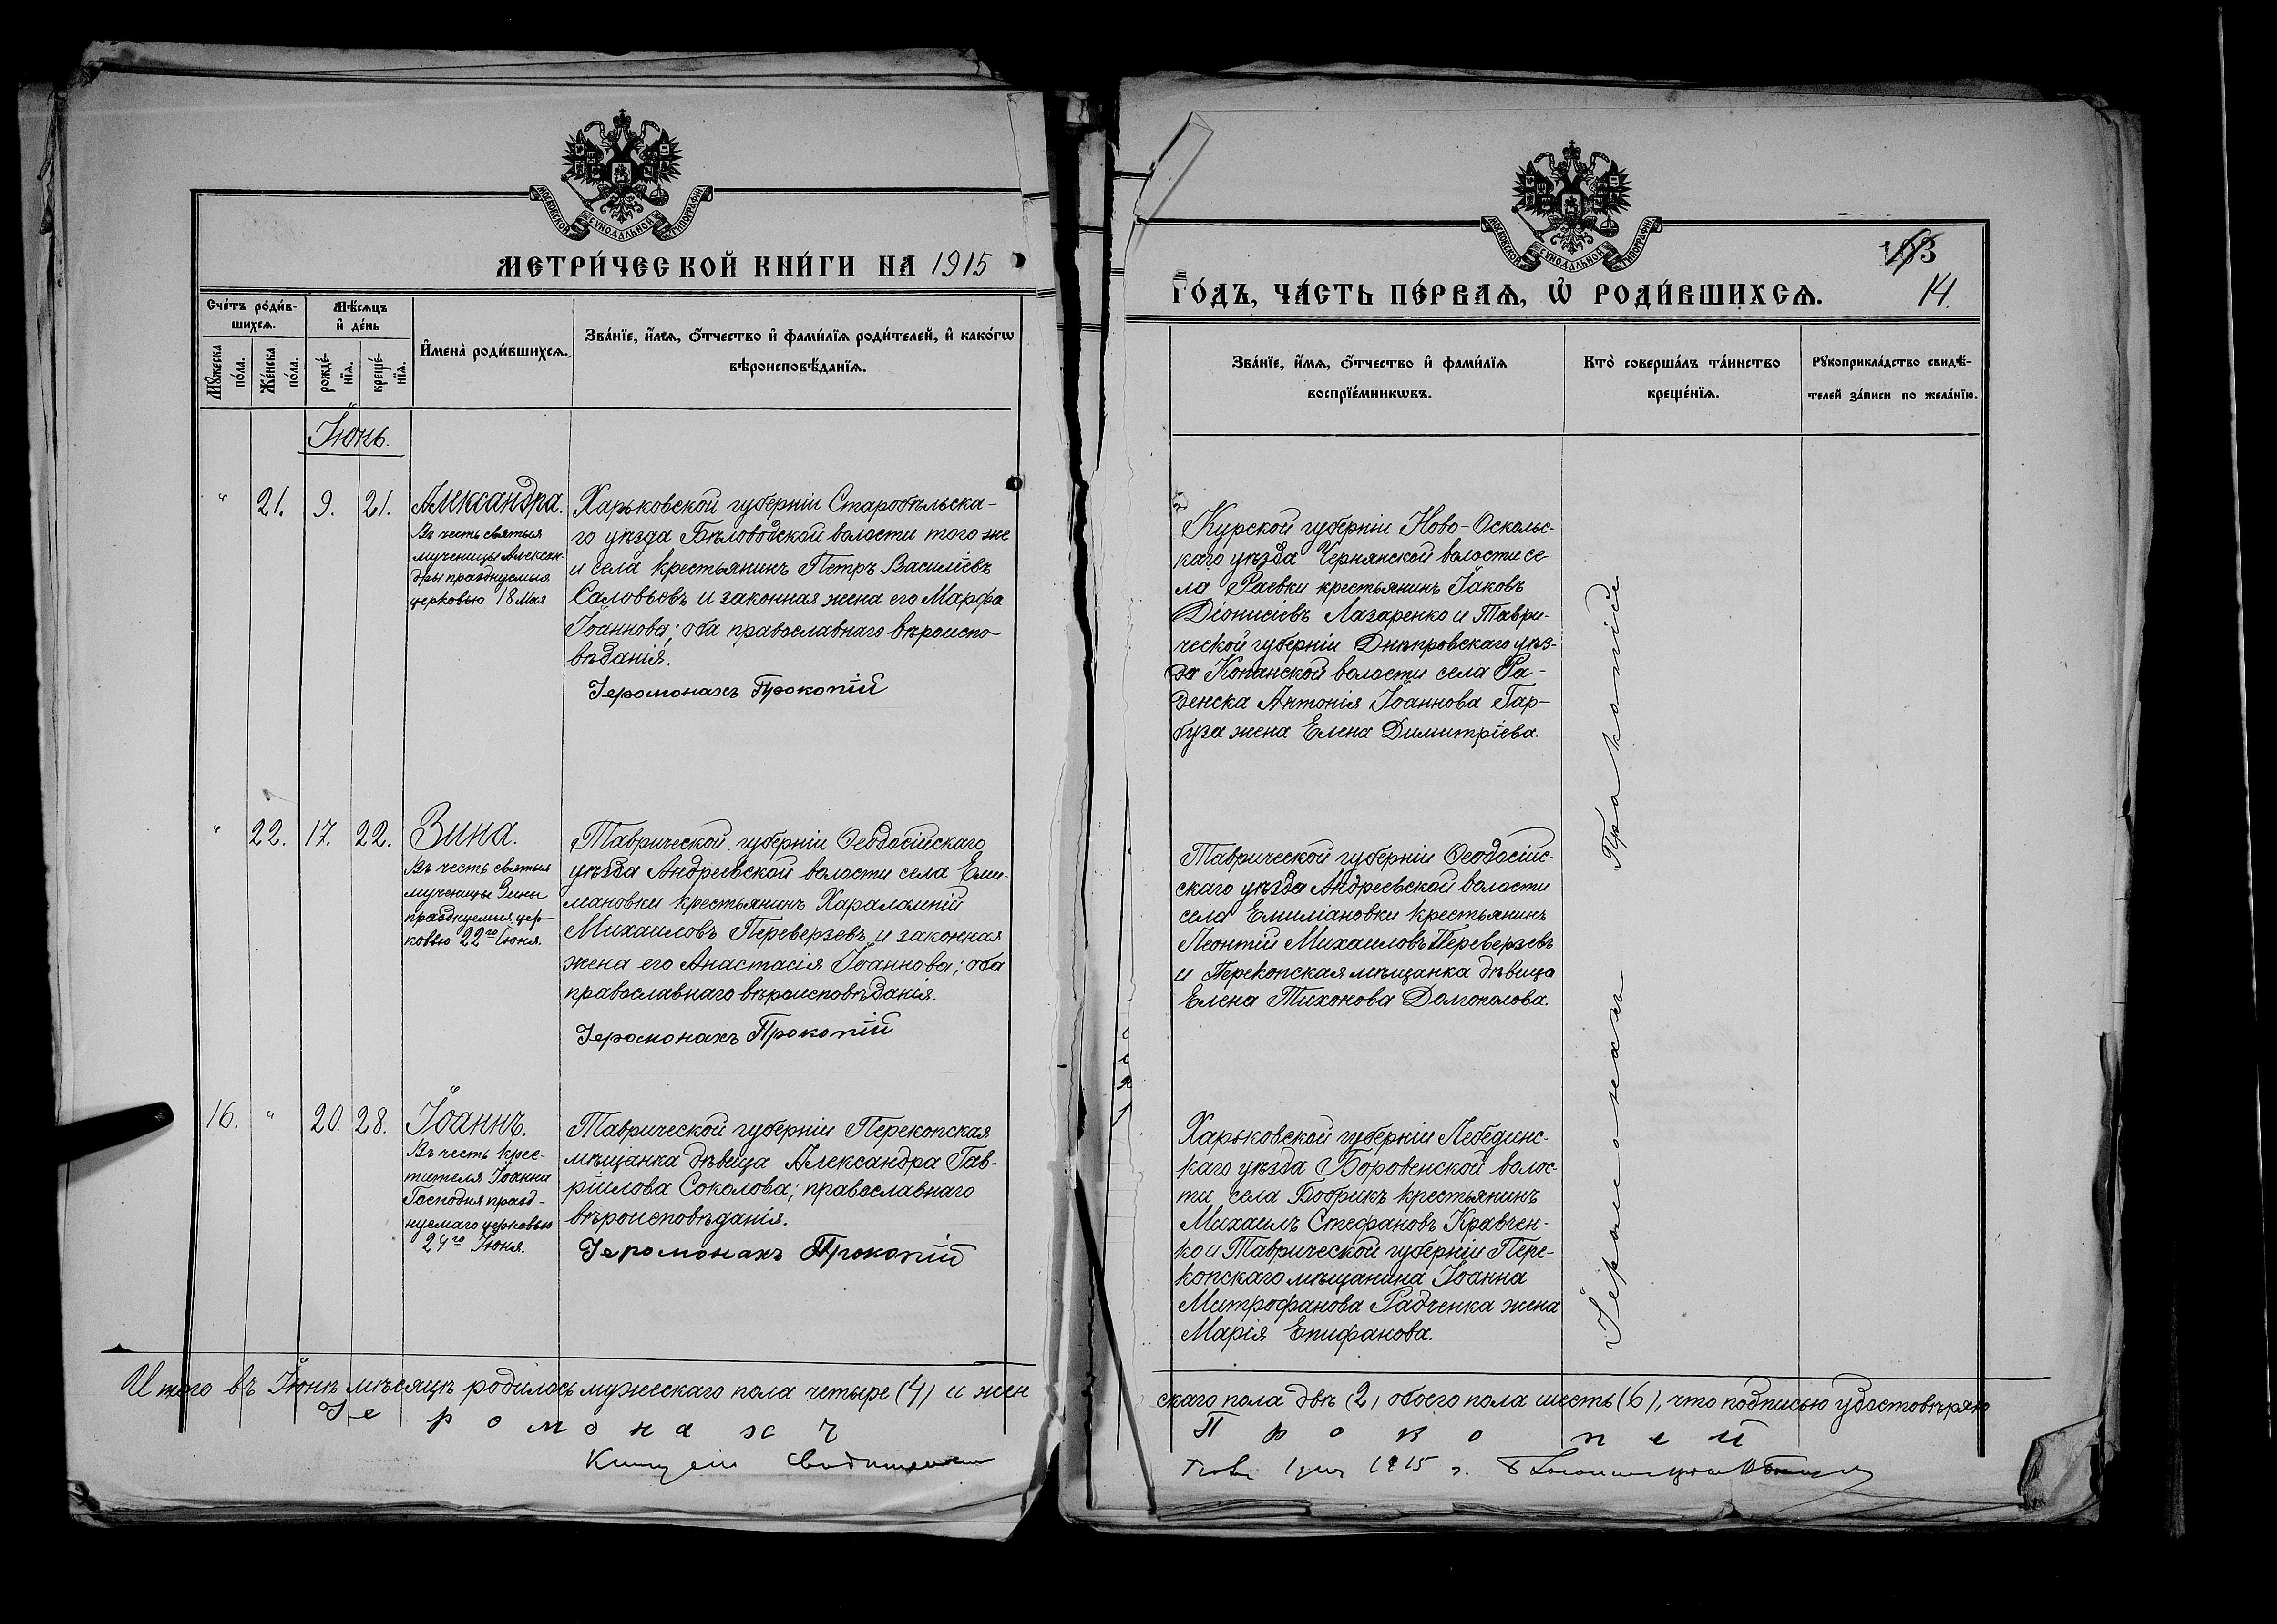 МОСКОВСКОЙ СѴНОДАЛЬНОЙ ТИПОГРАФІИ
МЕТРИ́ЧЕСКОЙ КНИ́ГИ НА 1915
Сче́тъ роди́в-
шихсѧ.
Мѣ́сѧцъ
и҆ де́нь
Мꙋ́жеска
по́ла.
Же́нска
по́ла.
рожде́-
нїѧ.
креще́-
нїѧ.
И҆мена̀ роди́вшихсѧ.
Зва́нїе, и҆́мѧ, ѻ҆́тчество и҆ фами́лїѧ роди́телей, и҆ како́гѡ
вѣроисповѣ́данїѧ.
Іюнь.
" 21. 9. 21.
Александра.
Въ честь святыя
мученицы Алексан-
дры празднуемыя
церковью 18 Мая
Харьковской губерніи Старобѣльска-
го уѣзда Бѣловодской волости того же
и села крестьянинъ Петръ Василіевъ
Саловьевъ и законная жена его Марфа
Іоаннова; оба православнаго вѣроиспо
вѣданія.
Іеромонахъ Прокопій
" 22. 17. 22.
Зина.
Въ честь святыя
мученицы Зины
празднуемыя цер-
ковью 22го Іюня.
Таврической губерніи Ѳеодосійскаго
уѣзда Андреевской волости села Еми-
ліановки крестьянинъ Харалампій
Михаиловъ Переверзевъ и законная
жена его Анастасія Іоаннова; оба
православнаго вѣроисповѣданія.
Іеромонахъ Прокопій
16. " 20. 28.
Іоаннъ.
Въ честь крес-
тителя Іоанна
Господня празд-
нуемаго церковью
24го Іюня.
Таврической губерніи Перекопская
мѣщанка дѣвица Александра Гав-
ріилова Соколова; православнаго
вѣроисповѣданія.
Іеромонахъ Прокопій
Итого въ Іюнѣ мѣсяцѣ родилось мужескаго пола четыре (4) и жен
Іеромонахъ
МОСКОВСКОЙ СѴНОДАЛЬНОЙ ТИПОГРАФІИ
ГО́ДЪ, ЧА́СТЬ ПЕ́РВАѦ, Ѡ҆ РОДИ́ВШИХСѦ.
14.
Зва́нїе, и҆́мѧ, ѻ҆́тчество и҆ фами́лїѧ
воспрїе́мникѡвъ.
Кто̀ соверша́лъ та́инство
креще́нїѧ.
Рꙋкоприкла́дство свидѣ́-
телей за́писи по жела́нїю.
Курской губерніи Ново-Оскольс-
каго уѣзда Чернянской волости се-
ла Раевки крестьянинъ Іаковъ
Діонисіевъ Лазаренко и Таври-
ческой губерніи Днѣпровскаго уѣз-
да Копанской волости села Ра-
денска Антонія Іоаннова Гар-
буза жена Елена Димитріева.
Таврической губерніи Ѳеодосійс-
скаго уѣзда Андреевской волости
села Емиліановки крестьянинъ
Леонтій Михаиловъ Переверзевъ
и Перекопская мѣщанка дѣвица
Елена Тихонова Долгополова.
Харьковской губерніи Лебединс-
каго уѣзда Боровенской волос-
ти села Бобрикъ крестьянинъ
Михаилъ Стефановъ Кравчен-
ко и Таврической губерніи Пере-
копскаго мѣщанина Іоанна
Митрофанова Радченка жена
Марія Епифанова.
Іеромонахъ Пракопій
скаго пола двѣ (2) обоего пола шесть (6), что подписью удостовѣряю
Прокопій
1915 г.